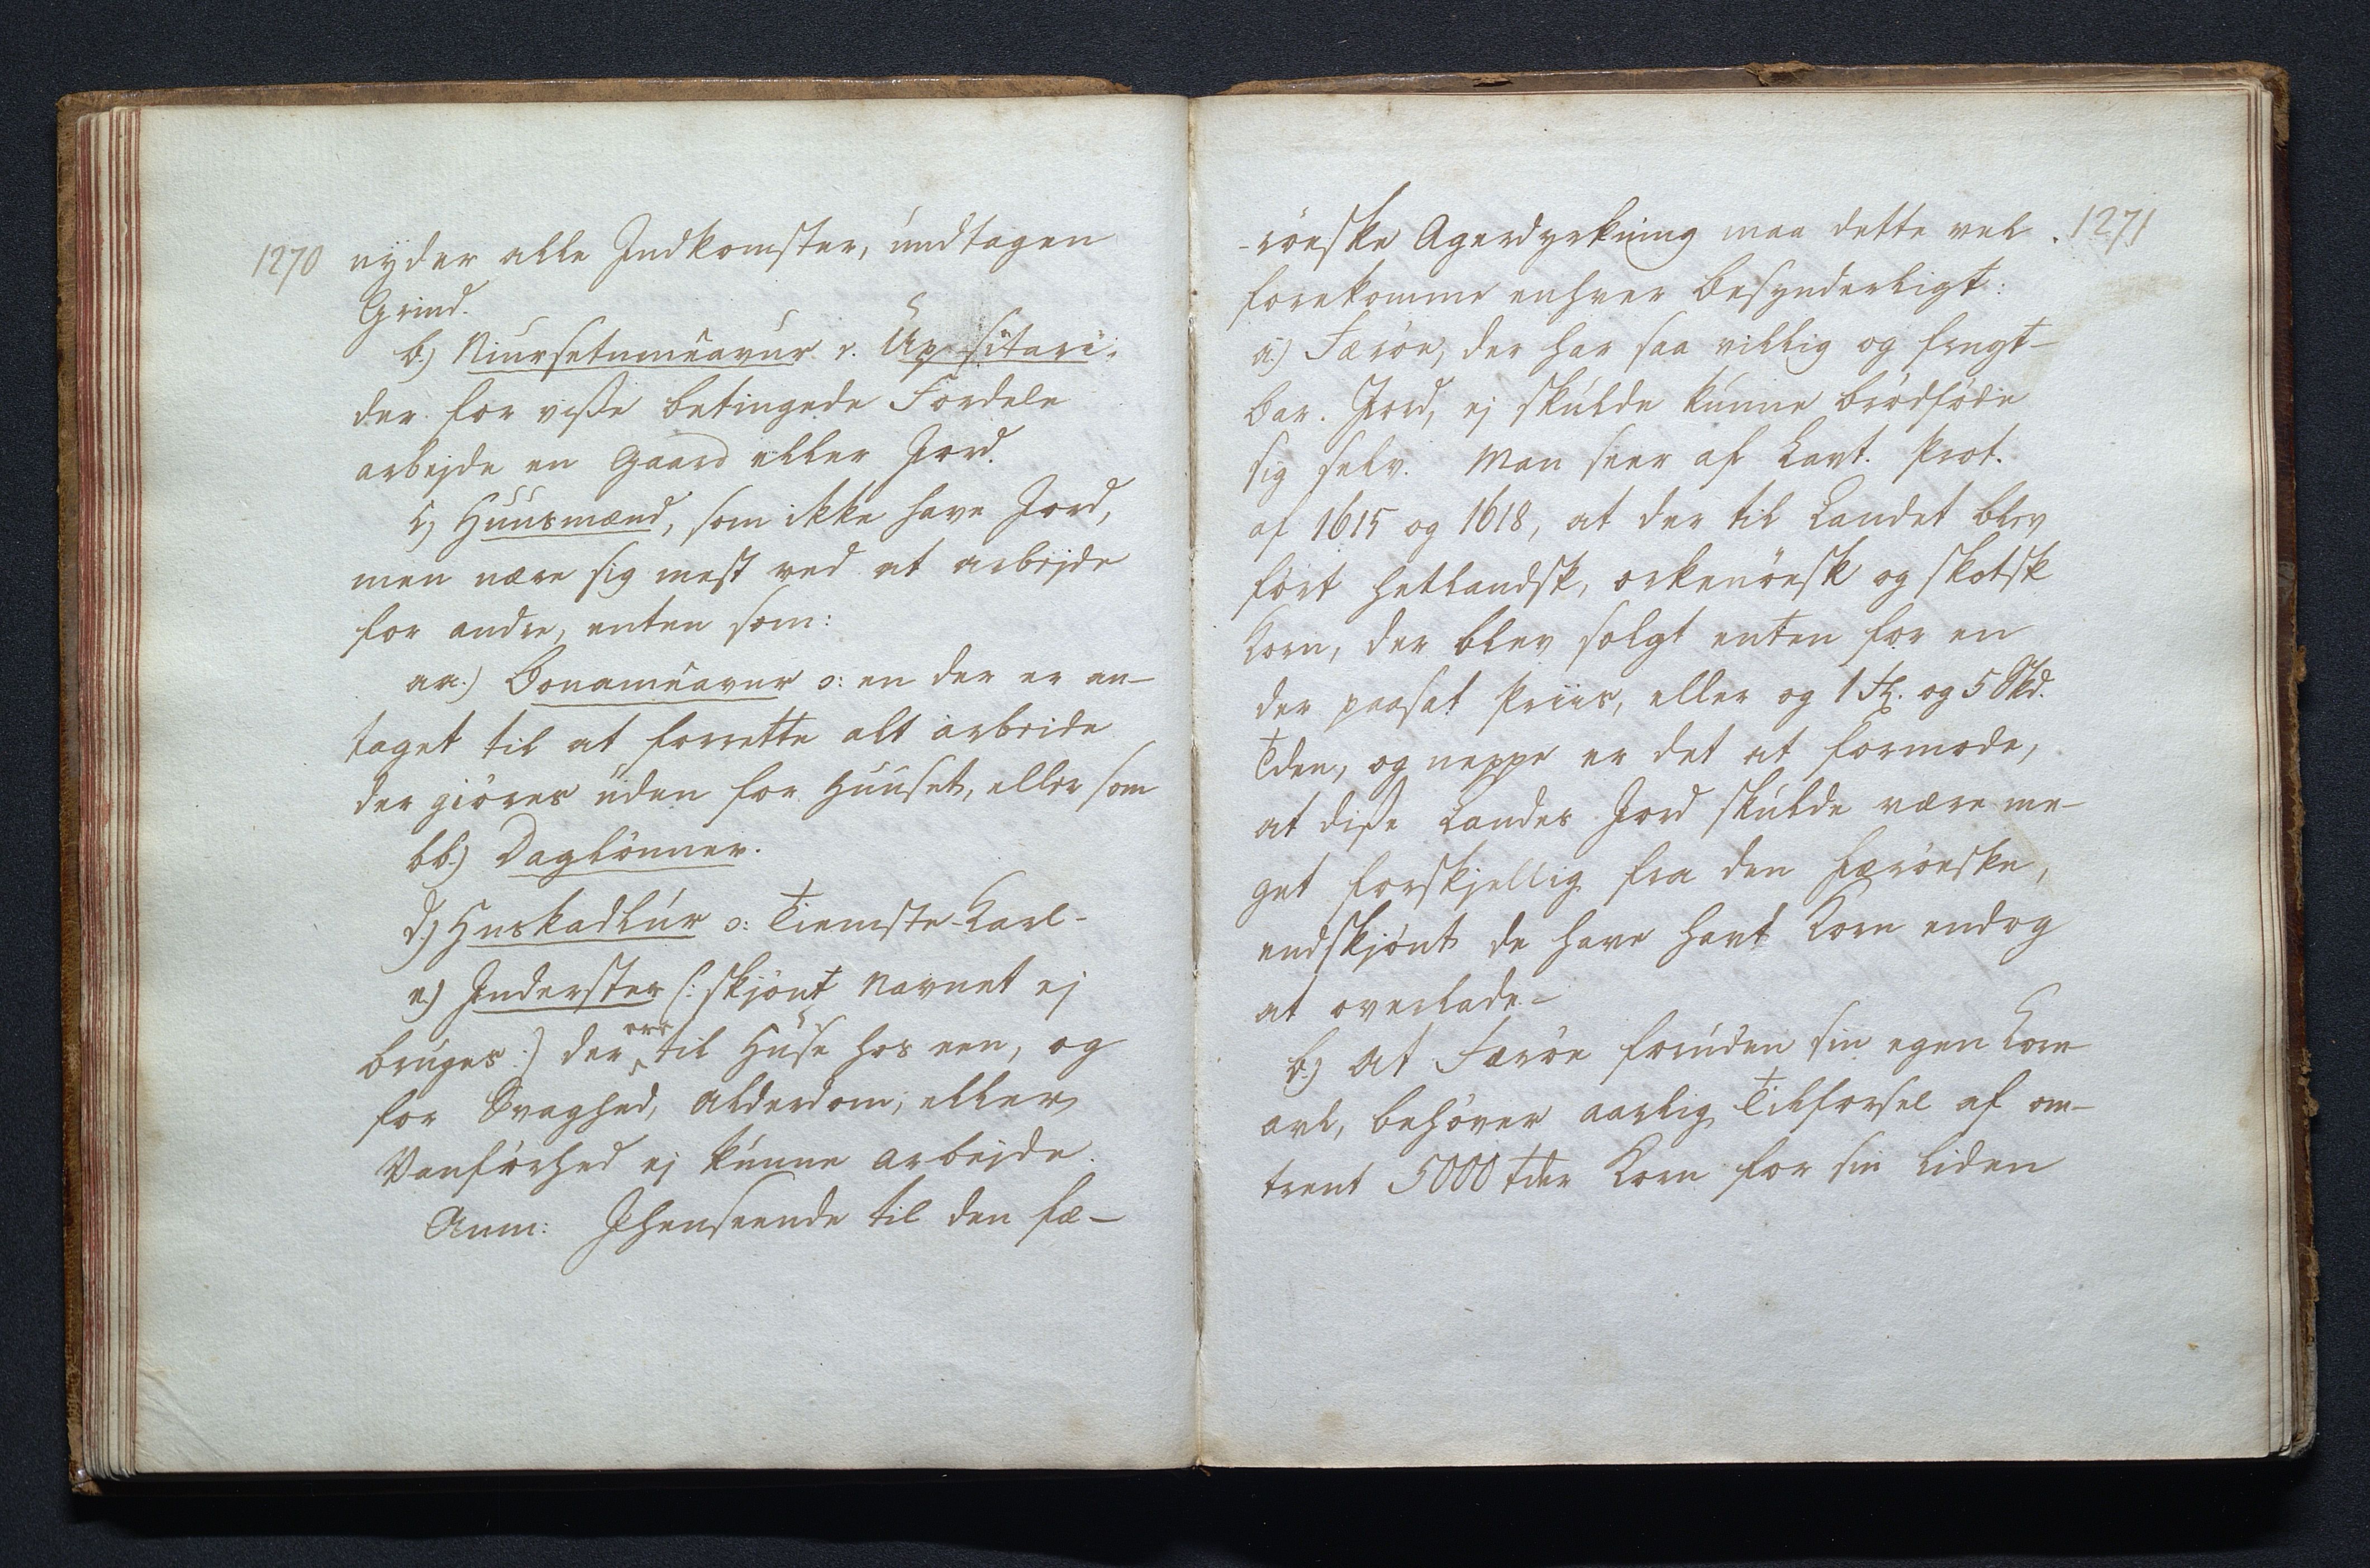 1270 nÿder alle Indkomster, undtagen
Grind.
b.) Niursetumeavur v. Upsitari,
der for visse betingede Fordele
arbejde en Gaard eller Jord.
c) Huusmænd, som ikke have Jord,
men nære sig mest ved at arbejde
for andre, enten som:
aa.) Bonameavur ɔ: en der er an-
taget til at forrette alt arbeide
der giöres uden for Huuset, eller som
bb.) Daglönner.
d.) Huskadlur ɔ: Tieneste-Karl-
e.) Inderster (: skjönt Navnet ej
bruges :) der ere til Huse hos een, og
for Svaghed, Alderdom, eller
Vanförhed ej kunne arbejde.
Anm: Ihenseende til den fæ-
-röeske Agerdyrkning maa dette vel 1271
forekomme enhver besynderligt:
a.) Færöe, der har saa villig og frugt-
bar Jord, ej skulde kunne brödföde
sig selv. Man seer af Lavt. Prot.
af 1615 og 1618, at der til Landet blev
fört hetlandsk, orkenöesk og skotsk
Korn, der blev solgt enten for en
der paasat Priis, eller og 1 og 5 Skd.
Tden, og neppe er det at formode,
at disse Landes Jord skulde være me-
get forskjellig fra den færöeske,
endskjönt de have havt Korn endog
at overlade.-
b.) At Færöe foruden sin egen Korn
avl, behöver aarlig Tilförsel af om-
trent 5000 tdr Korn for sin liden